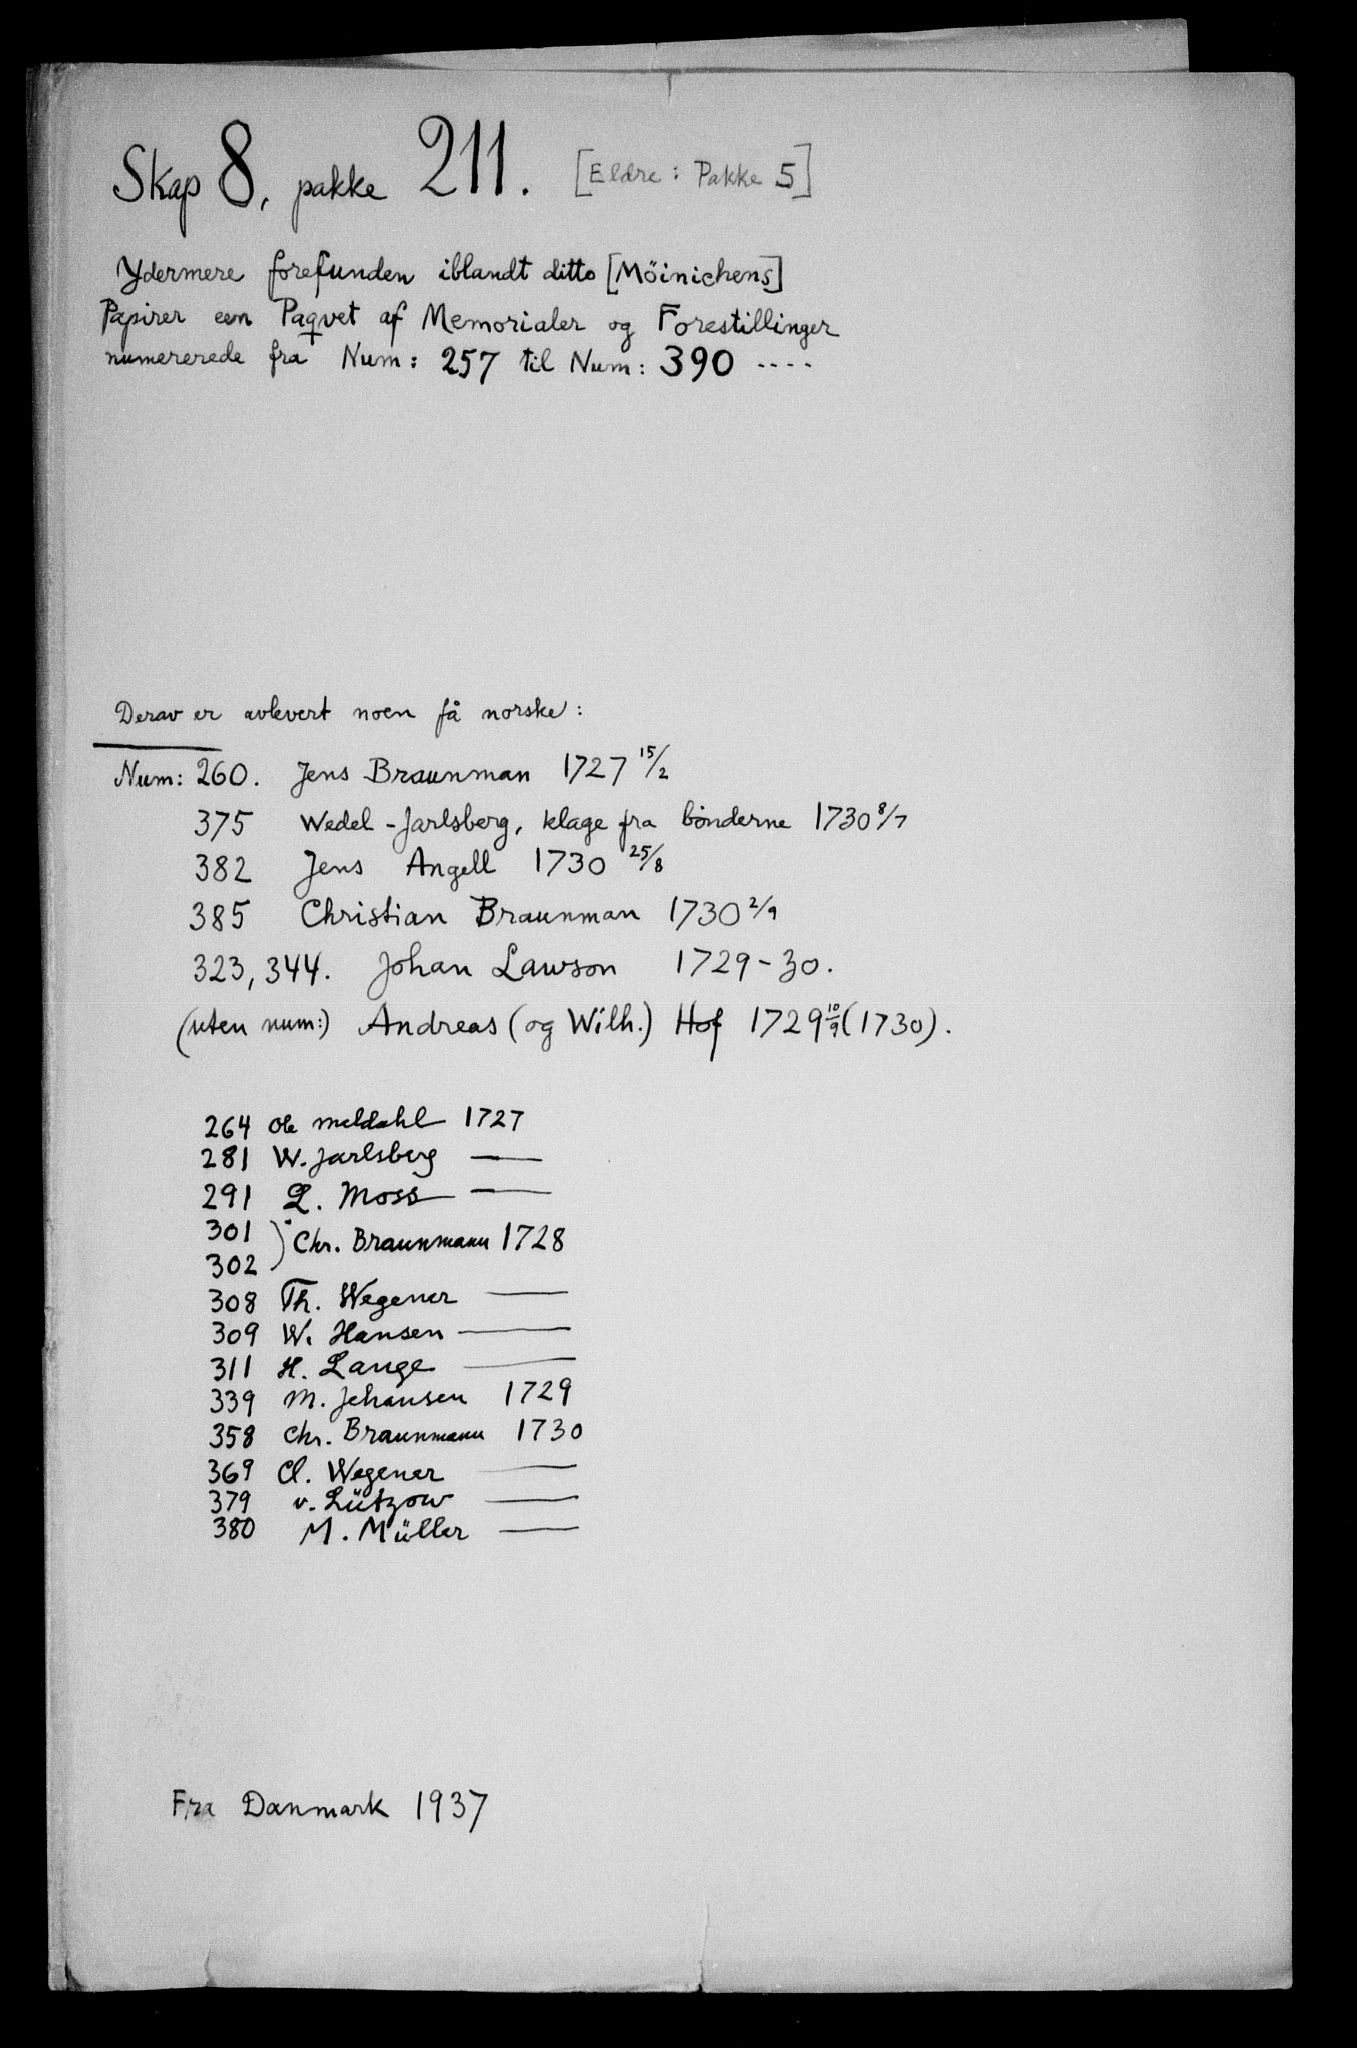 Skap 8, pakke 211. [Eldre: Pakke 5]
Ydermere forefunden iblandt ditto [Möinichens]
Papirer een Paqvet af Memorialer og Forestillinger
numererede fra Num: 257 til Num: 390 ----
Derav er avlevert noen få norske:
Num: 260. Jens Braunman 1727 15/2
375 Wedel-Jarlsberg, klage fra bönderne 1730 8/7
382 Jens Angell 1730 25/8
385 Christian Braunman 1730 2/9
323, 344. Johan Lawson 1729-30.
(uten num:) Andreas (og Wilh.) Hof 1729 10/9 (1730).
264 Ole Meldahl 1727
281 W. Jarlsberg —
291 L. Moss —
301
302 } Chr. Braunmann 1728
308 Th. Wegener —
309 W. Hansen —
311 H. Lange —
339 M. Johansen 1729
358 Chr. Braunmann 1730
369 Cl. Wegener —
379 v. Lützow —
380 M. Müller —
Fra Danmark 1937